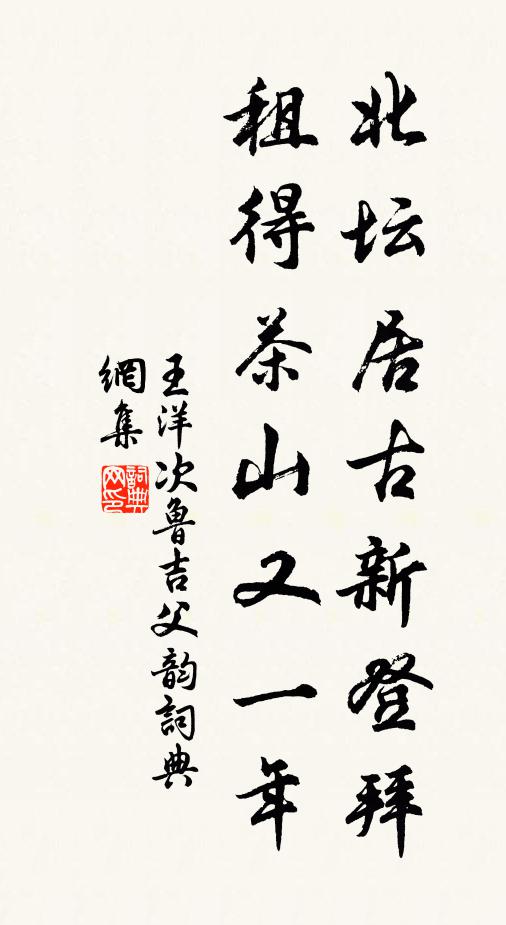 北坛居古新登拜
租得茶山又一年
王洋次魯吉父韵詞典
網集
詞典網印